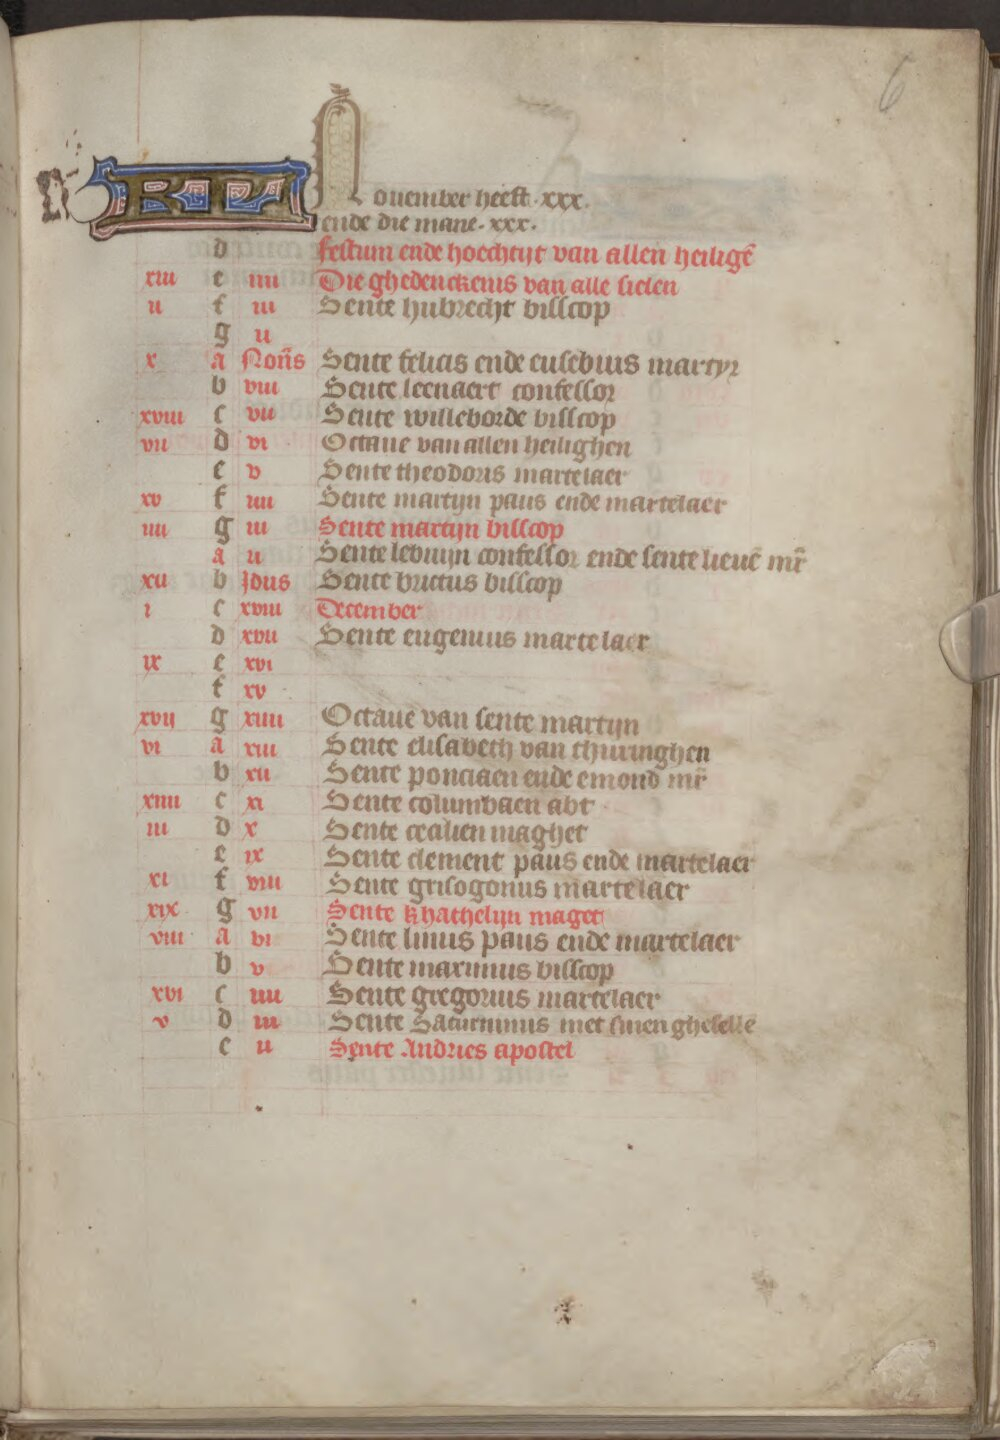 6
KL Nouember heeft .xxx.
ende die mane .xxx.
d festum ende hoechtijt van allen heiligē
xiii e iiii Die ghedenckenis van alle sielen
ii f iii Sente hubrecht bisscop
g ii
x a Noñs Sente felicis ende eusebius martyr
b viii Sente leenaert confessor
xviii c vii Sente willeborde bisscop
vii d vi Octaue van allen heilighen
e v Sente theodorus martelaer
xv f iiii Sente martijn paus ende martelaer
iiii g iii Sente martijn bisscop
a ii Sente lebuijn confessor ende sente lieuē mr̄
xii b Jdus Sente brictus bisscop
i c xviii December
d xvii Sente eugenius martelaer
ix e xvi
f xv
xvij g xiiii Octaue van sente martijn
vi a xiii Sente elisabeth van thuringhen
b xii Sente ponciaen ende emond mr̄
xiiii c xi Sente columbaen abt
iii d x Sente cecilien maghet
e ix Sente clement paus ende martelaer
xi f viii Sente grisogonus martelaer
xix g vii Sente khathelijn maget
viii a vi Sente linus paus ende martelaer
b v Sente maximus bisscop
xvi c iiii Sente gregorius martelaer
v d iii Sente Saturninus met sinen ghesellē
e ii Sente Andries apostel